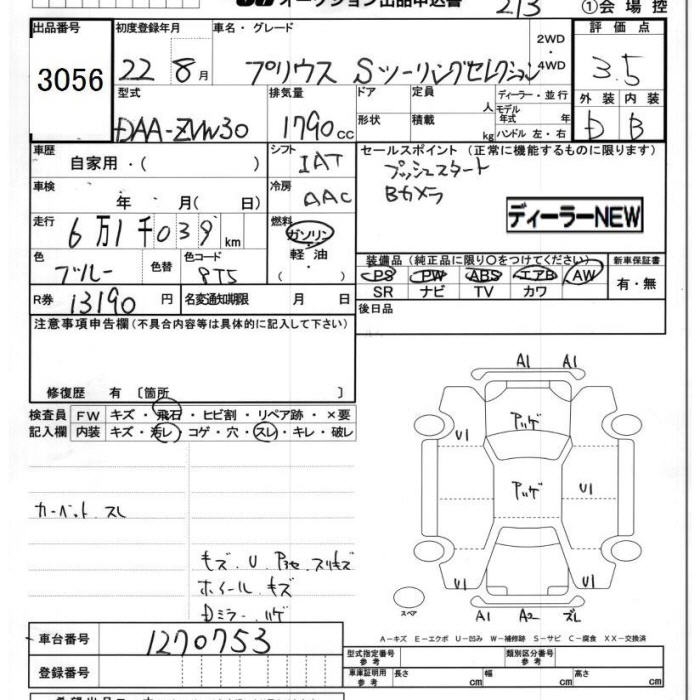 オークション出品申込書
213
①会場控
出品番号
3056
初度登録年月
22 8月
車名・グレード
プリウス Sツーリングセレクション
2WD・4WD
評価点
3.5
型式
DAA-ZVW30
排気量
1790cc
ドア
形状
定員 人
積載 kg
ディーラー・並行
モデル年式 年
ハンドル 左・右
外装 内装
D B
車歴
自家用・( )
シフト
IAT
車検
年 月( 日)
冷房
AAC
走行
6万1千039km
燃料
ガソリン
軽油
( )
色
ブルー
色替
色コード
8T5
R券 13190円
名変通知期限 月 日
セールスポイント(正常に機能するものに限ります)
プッシュスタート
Bカメラ
ディーラーNEW
装備品(純正品に限り○をつけてください)
PS PW ABS エアB AW
SR ナビ TV カワ
新車保証書
有・無
後日品
注意事項申告欄(不具合内容等は具体的に記入して下さい)
修復歴 有〔箇所 〕
検査員 FW キズ・飛石・ヒビ割・リペア跡・×要
記入欄 内装 キズ・汚レ・コゲ・穴・スレ・キレ・破レ
カーペット スレ
キズ.U.アセ.スリキズ
ホイール.キズ
Dミラー.ハゲ
A1 A1
アッゲ
U1
アッゲ
U1
U1 U1
スペア
A1 A2 ズレ
A-キズ E-エクボ U-凹み W-補修跡 S-サビ C-腐食 XX-交換済
車台番号 1270753
登録番号
型式指定番号 参考
類別区分番号 参考
車庫証明用 参考
長さ cm 幅 cm 高さ cm